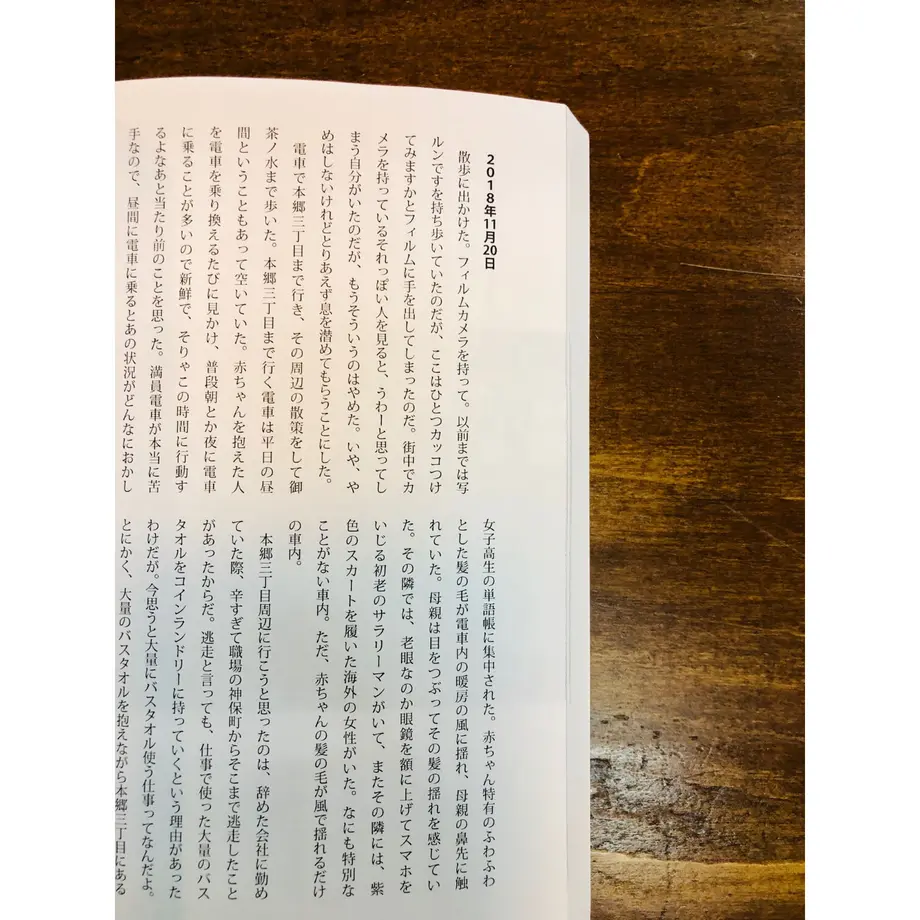 2018年11月20日
散歩に出かけた。フィルムカメラを持って。以前までは写
ルンですを持ち歩いていたのだが、ここはひとつカッコつけ
てみますかとフィルムに手を出してしまったのだ。街中でカ
メラを持っているそれっぽい人を見ると、うわーと思ってし
まう自分がいたのだが、もうそういうのはやめた。いや、や
めはしないけれどとりあえず息を潜めてもらうことにした。
電車で本郷三丁目まで行き、その周辺の散策をして御
茶ノ水まで歩いた。本郷三丁目まで行く電車は平日の昼
間ということもあって空いていた。赤ちゃんを抱えた人
を電車を乗り換えるたびに見かけ、普段朝とか夜に電車
に乗ることが多いので新鮮で、そりゃこの時間に行動す
るよなあと当たり前のことを思った。満員電車が本当に苦
手なので、昼間に電車に乗るとあの状況がどんなにおかし
女子高生の単語帳に集中された。赤ちゃん特有のふわふわ
とした髪の毛が電車内の暖房の風に揺れ、母親の鼻先に触
れていた。母親は目をつぶってその髪の揺れを感じてい
た。その隣では、老眼なのか眼鏡を額に上げてスマホを
いじる初老のサラリーマンがいて、またその隣には、紫
色のスカートを履いた海外の女性がいた。なにも特別な
ことがない車内。ただ、赤ちゃんの髪の毛が風で揺れるだけ
の車内。
本郷三丁目周辺に行こうと思ったのは、辞めた会社に勤め
ていた際、辛すぎて職場の神保町からそこまで逃走したこと
があったからだ。逃走と言っても、仕事で使った大量のバス
タオルをコインランドリーに持っていくという理由があった
わけだが。今思うと大量にバスタオル使う仕事ってなんだよ。
とにかく、大量のバスタオルを抱えながら本郷三丁目にある